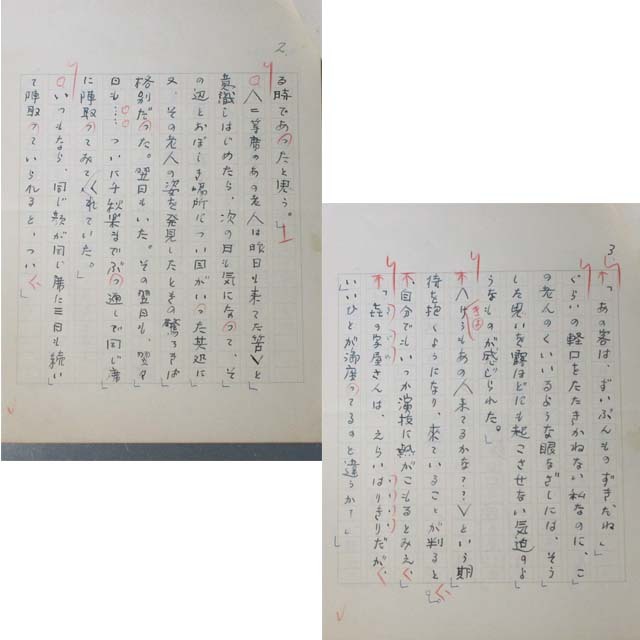 2.
る時であったと思う。」
〈二等席のあの老人は昨日も来てた筈〉と
意識しはじめたら、次の日も気になって、そ
の辺とおぼしき場所につい目がいった其処に
又、その老人の姿を発見したときの驚ろきは
格別だった。翌日もいた。その翌日も、翌々
日も……ついに千秋楽までぶっ通しで同じ席
に陣取ってみてくれていた。
いつもなら、同じ顔が同じ席に三日も続い
て陣取っていられると、つい、
3
「あの客は、ずいぶんものずきだね」
ぐらいの軽口をたたきかねない私なのに、こ
の老人のくいいるような眼なざしには、そう
した思いを露ほどにも起こさせない気迫のよ
うなものが感じられた。
〈けうもあの人来てるかな??〉という期
きょ
待を抱くようになり、来ていることが判ると
自分でもいつか演技に熱がこもるとみえ、
「
さんは、えらいはりきりだが、
いいひとが満座ってるのと違うか?」